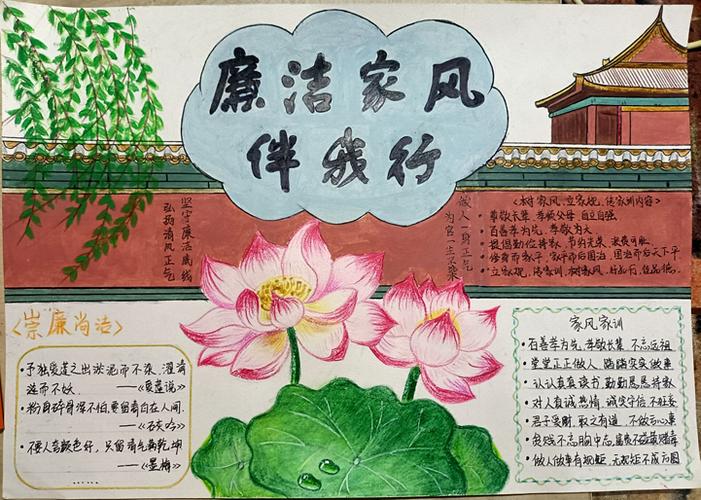 廉洁家风
伴我行
坚守廉洁底线
弘扬清风正气
做人一身正气
为官一生 
<树家风、立家规、传家训内容>
• 尊敬长辈,孝顺父母,自立自强
• 百善孝为先,孝敬为大
• 提倡勤俭持家,节约光荣,浪费可耻
• 修身而家平,家平而后国治,国治而后天下平
• 立家规,传家训,树家风
<崇廉尚洁>
• 予独爱莲之出淤泥而不染,濯清
涟而不妖。
——《爱莲说》
• 粉身碎骨浑不怕,要留清白在人间。
——《石灰吟》
• 不要人夸颜色好,只留清气满乾坤
——《墨梅》
……
家风家训
• 百善孝为先,孝敬长辈,不忘远祖
• 堂堂正正做人,踏踏实实做事
• 认认真真读书,勤勤恳恳持家
• 对人真诚热情,诚实守信,不妄
• 君子爱财,取之有道,不做亏心事
• 贫贱不忘胸中志,富贵不
• 做人做事有规矩,无规矩不成方圆